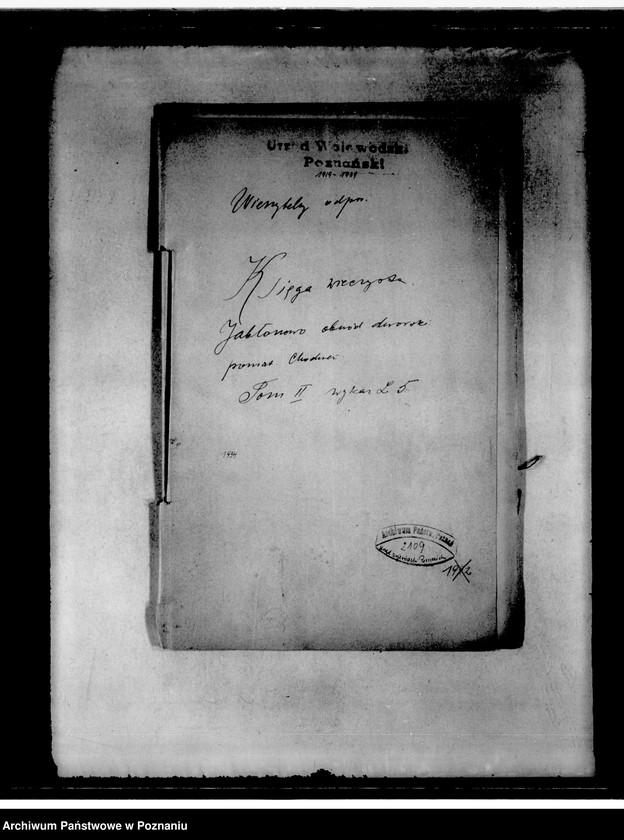 Urząd Wojewódzki
Poznański
1919-1939
Wierzytelny odpis.
Księga wieczysta
Jabłonowo obwód dworski
powiat Chodzież
Tom II wykaz L 5.
1934
Archiwum Państw. Poznań
2109
Urząd Wojewódzki Poznański
Archiwum Państwowe w Poznaniu